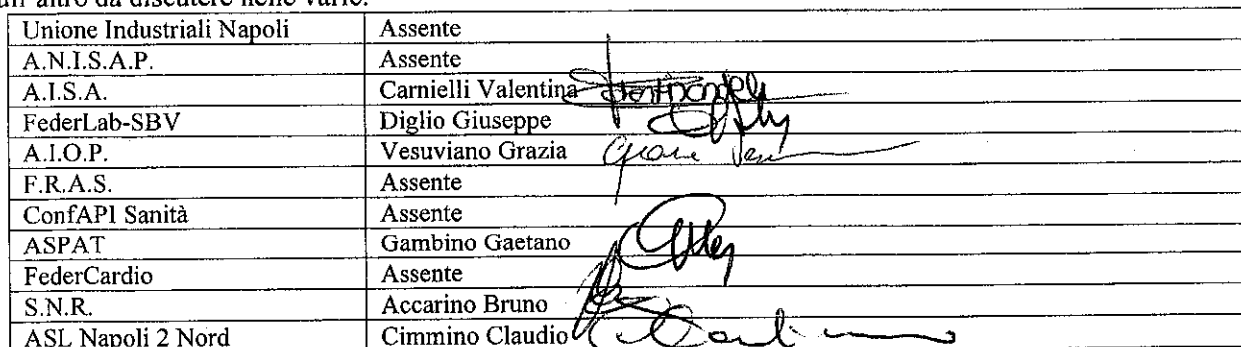 altro da discutere nelle varie.
Unione Industriali Napoli Assente
A.N.I.S.A.P. Assente
A.I.S.A. Carnielli Valentina
FederLab-SBV Diglio Giuseppe
A.I.O.P. Vesuviano Grazia
F.R.A.S. Assente
ConfAPI Sanità Assente
ASPAT Gambino Gaetano
FederCardio Assente
S.N.R. Accarino Bruno
ASL Napoli 2 Nord Cimmino Claudio